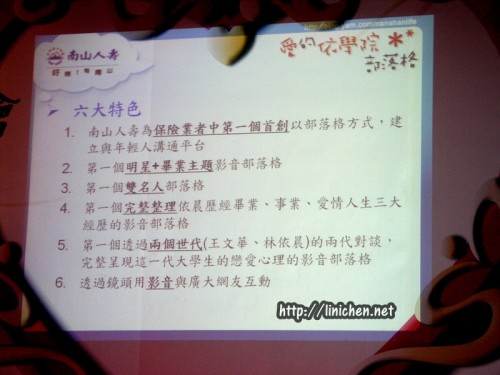 南山人壽
好險！有南山
愛的依學院
部落格
六大特色
1. 南山人壽為保險業者中第一個首創以部落格方式，建
立與年輕人溝通平台
2. 第一個明星+畢業主題影音部落格
3. 第一個雙名人部落格
4. 第一個完整整理依晨歷經畢業、事業、愛情人生三大
經歷的影音部落格
5. 第一個透過兩個世代(王文華、林依晨)的兩代對談，
完整呈現這一代大學生的戀愛心理的影音部落格
6. 透過鏡頭用影音與廣大網友互動
http://linichen.net